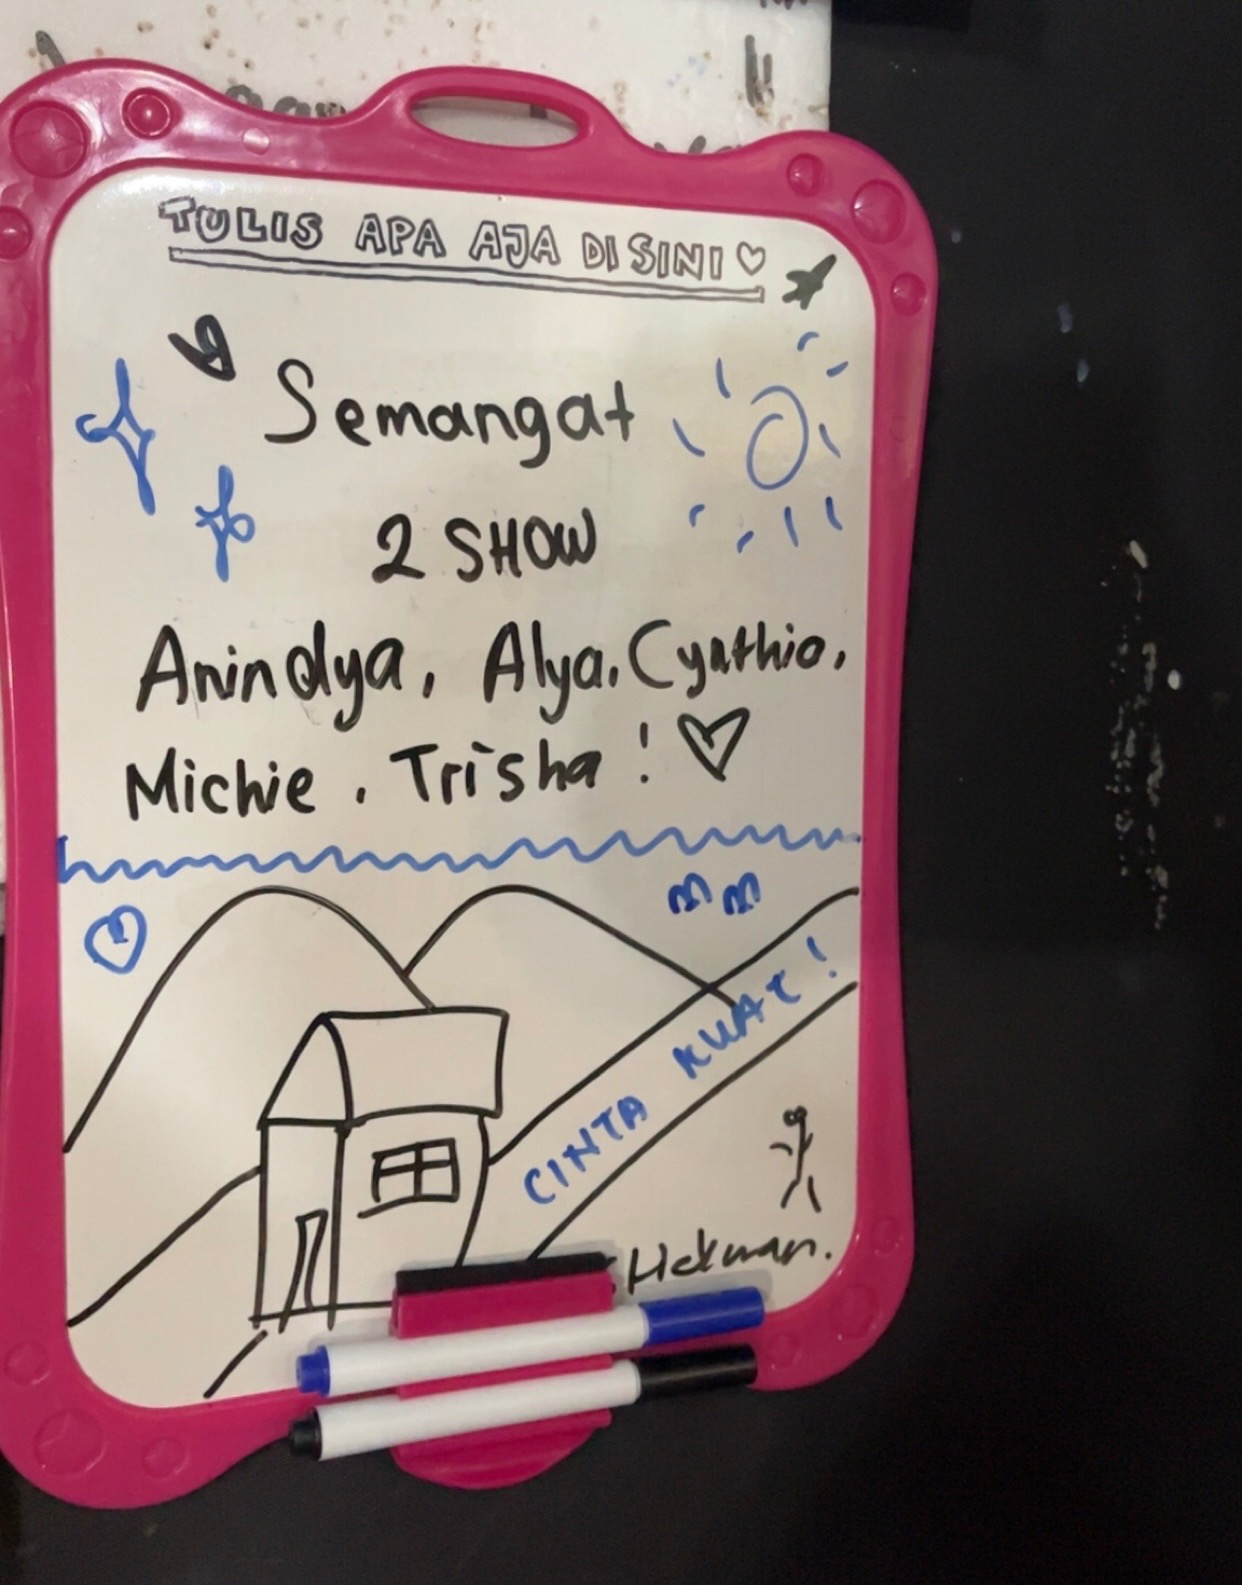 TULIS APA AJA DI SINI
Semangat
2 SHOW
Anindya, Alya, Cynthia,
Michie, Trisha!
CINTA KUAT!